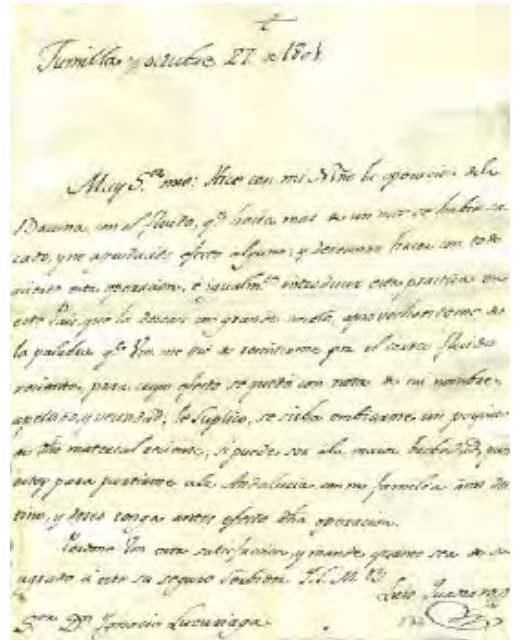 Jumilla y octubre 27 de 1801
Muy S.or mio: Hice con mi Niño la operacion de la
Bacuna con el fluido, q.e hacia mas de un mes se habia sa
cado, y no produció efecto alguno; y deseando hacer con todo
acierto esta operacion, è igualm.te introducir esta practica en
este Pais, que la desea con grande anelo, aprovecharéme de
la palabra q.e Vm me dió de remitirme por el correo fluido
reciente, para cuyo efecto se quedó con nota de mi nombre,
apellido, y vecindad; le suplico, se sirba embiarme un poquito
de dho material reciente, si puede ser a la mayor brebedad, pues
estoy para partirme a la Andalucia con mi familia
y deseo tenga antes efecto dha operacion.
Perdone Vm esta satisfaccion, y mande quanto sea de su
agrado á este su seguro Servidor
Luis
S.or D.n Ignacio Luzuriaga